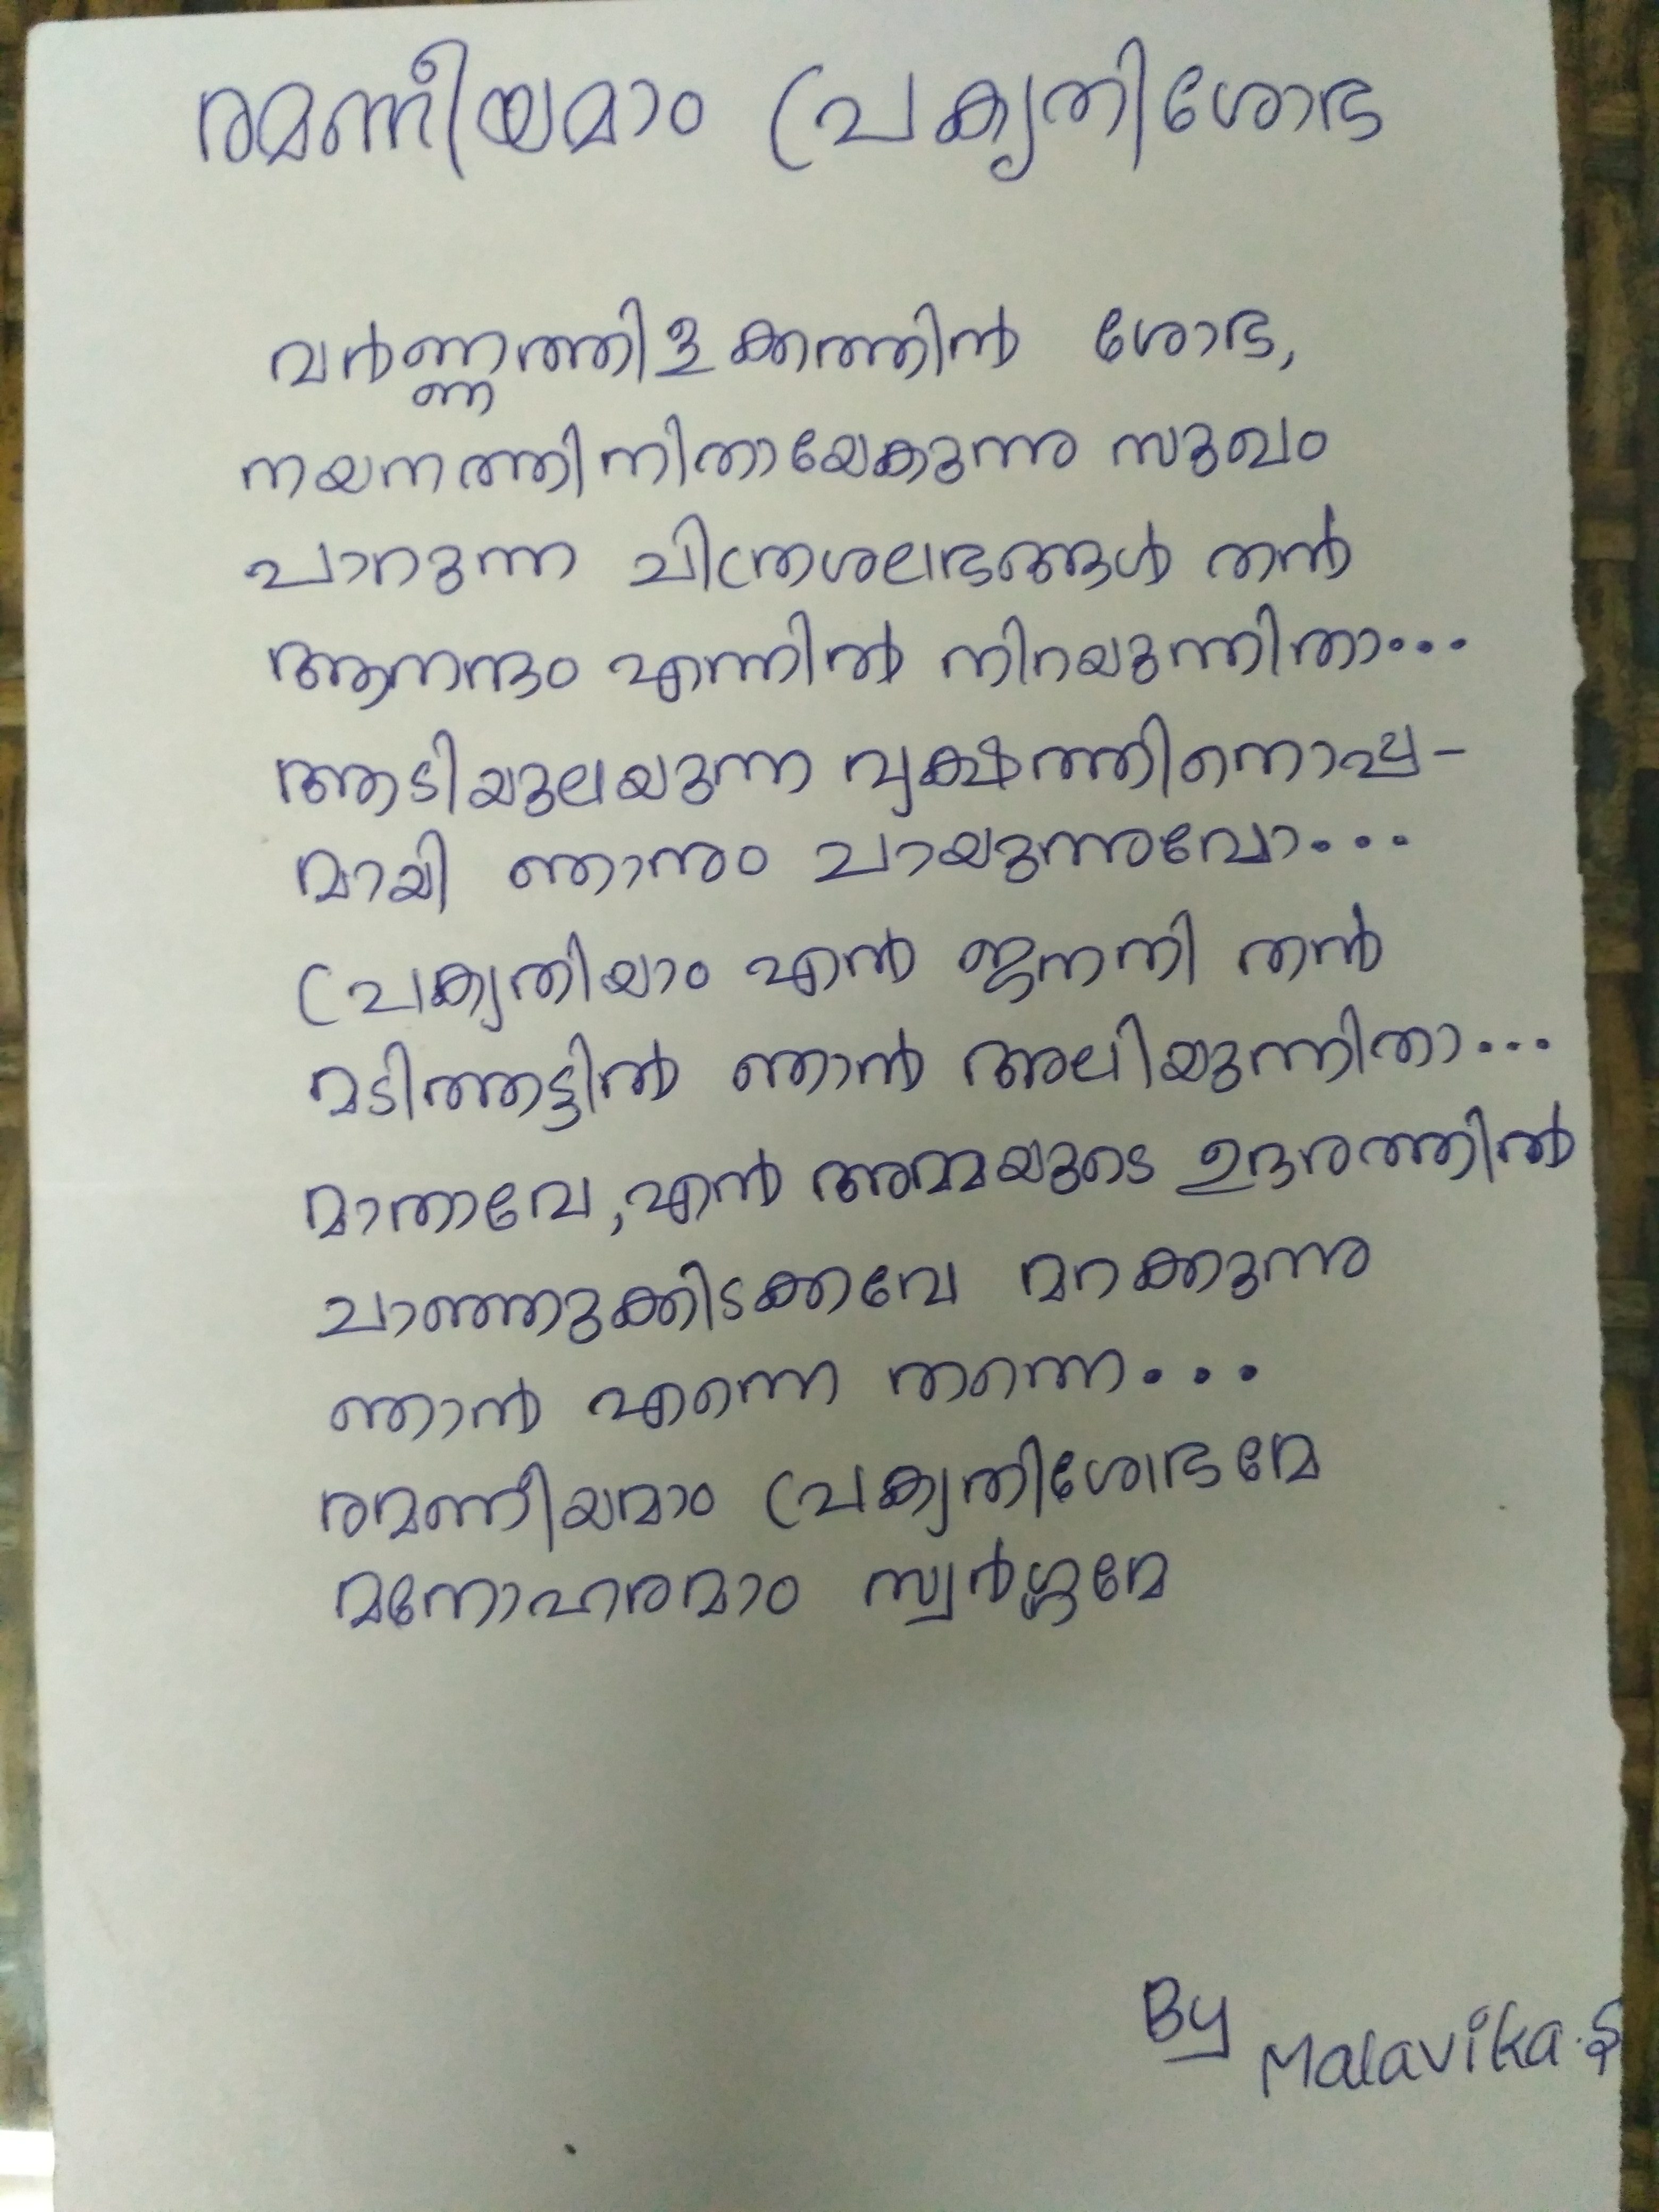 രമണീയമാം പ്രകൃതിശോഭ
വർണ്ണത്തിളക്കത്തിൻ ശോഭ,
നയനത്തിനിതായേകുന്നു സുഖം
പാറുന്ന ചിത്രശലഭങ്ങൾ തൻ
ആനന്ദം എന്നിൽ നിറയുന്നിതാ...
ആടിയുലയുന്ന വൃക്ഷത്തിനൊപ്പ-
മായി ഞാനും പായുന്നുവോ...
പ്രകൃതിയാം എൻ ജനനി തൻ
മടിത്തട്ടിൽ ഞാൻ അലിയുന്നിതാ...
മാതാവേ, എൻ അമ്മയുടെ ഉദരത്തിൽ
ചാഞ്ഞുക്കിടക്കവേ മറക്കുന്നു
ഞാൻ എന്നെ തന്നെ...
രമണീയമാം പ്രകൃതിശോഭമേ
മനോഹരമാം സ്വർഗ്ഗമേ
By
Malavika.S